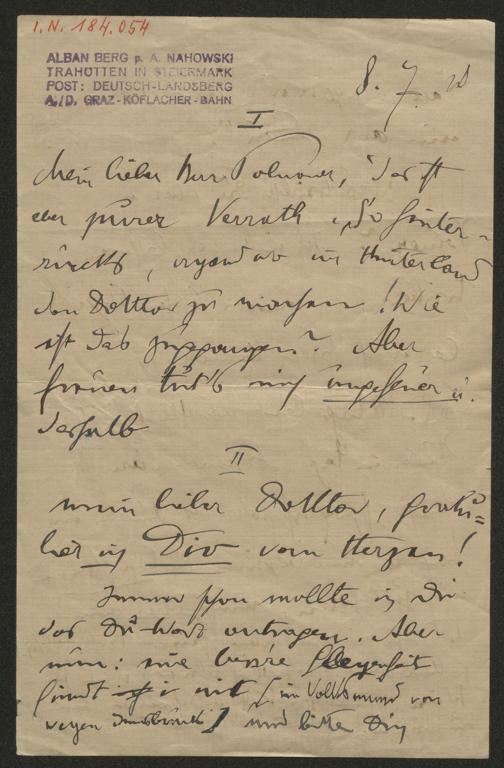 I.N. 184.054
ALBAN BERG p. A. NAHOWSKI
TRAHÜTTEN IN STEIERMARK
POST: DEUTSCH-LANDSBERG
A./D. GRAZ-KÖFLACHER-BAHN
8. 7.
I
Mein lieber Herr Polnauer, das ist
aber purer Verrath, so hinter-
rücks, irgendwo im Hinterland
den Doktor zu machen! Wie
ist das zugegangen? Aber
freuen tut's mich ungeheuer u.
deshalb
II
mein lieber Doktor, gratu-
lier ich Dir vom Herzen!
Immer schon wollte ich Dir
das Du-Wort antragen. Aber
nun: eine bess're Gelegenheit
findt i nit (im Volksmund von
wegen Innsbruck) und bitte Dich